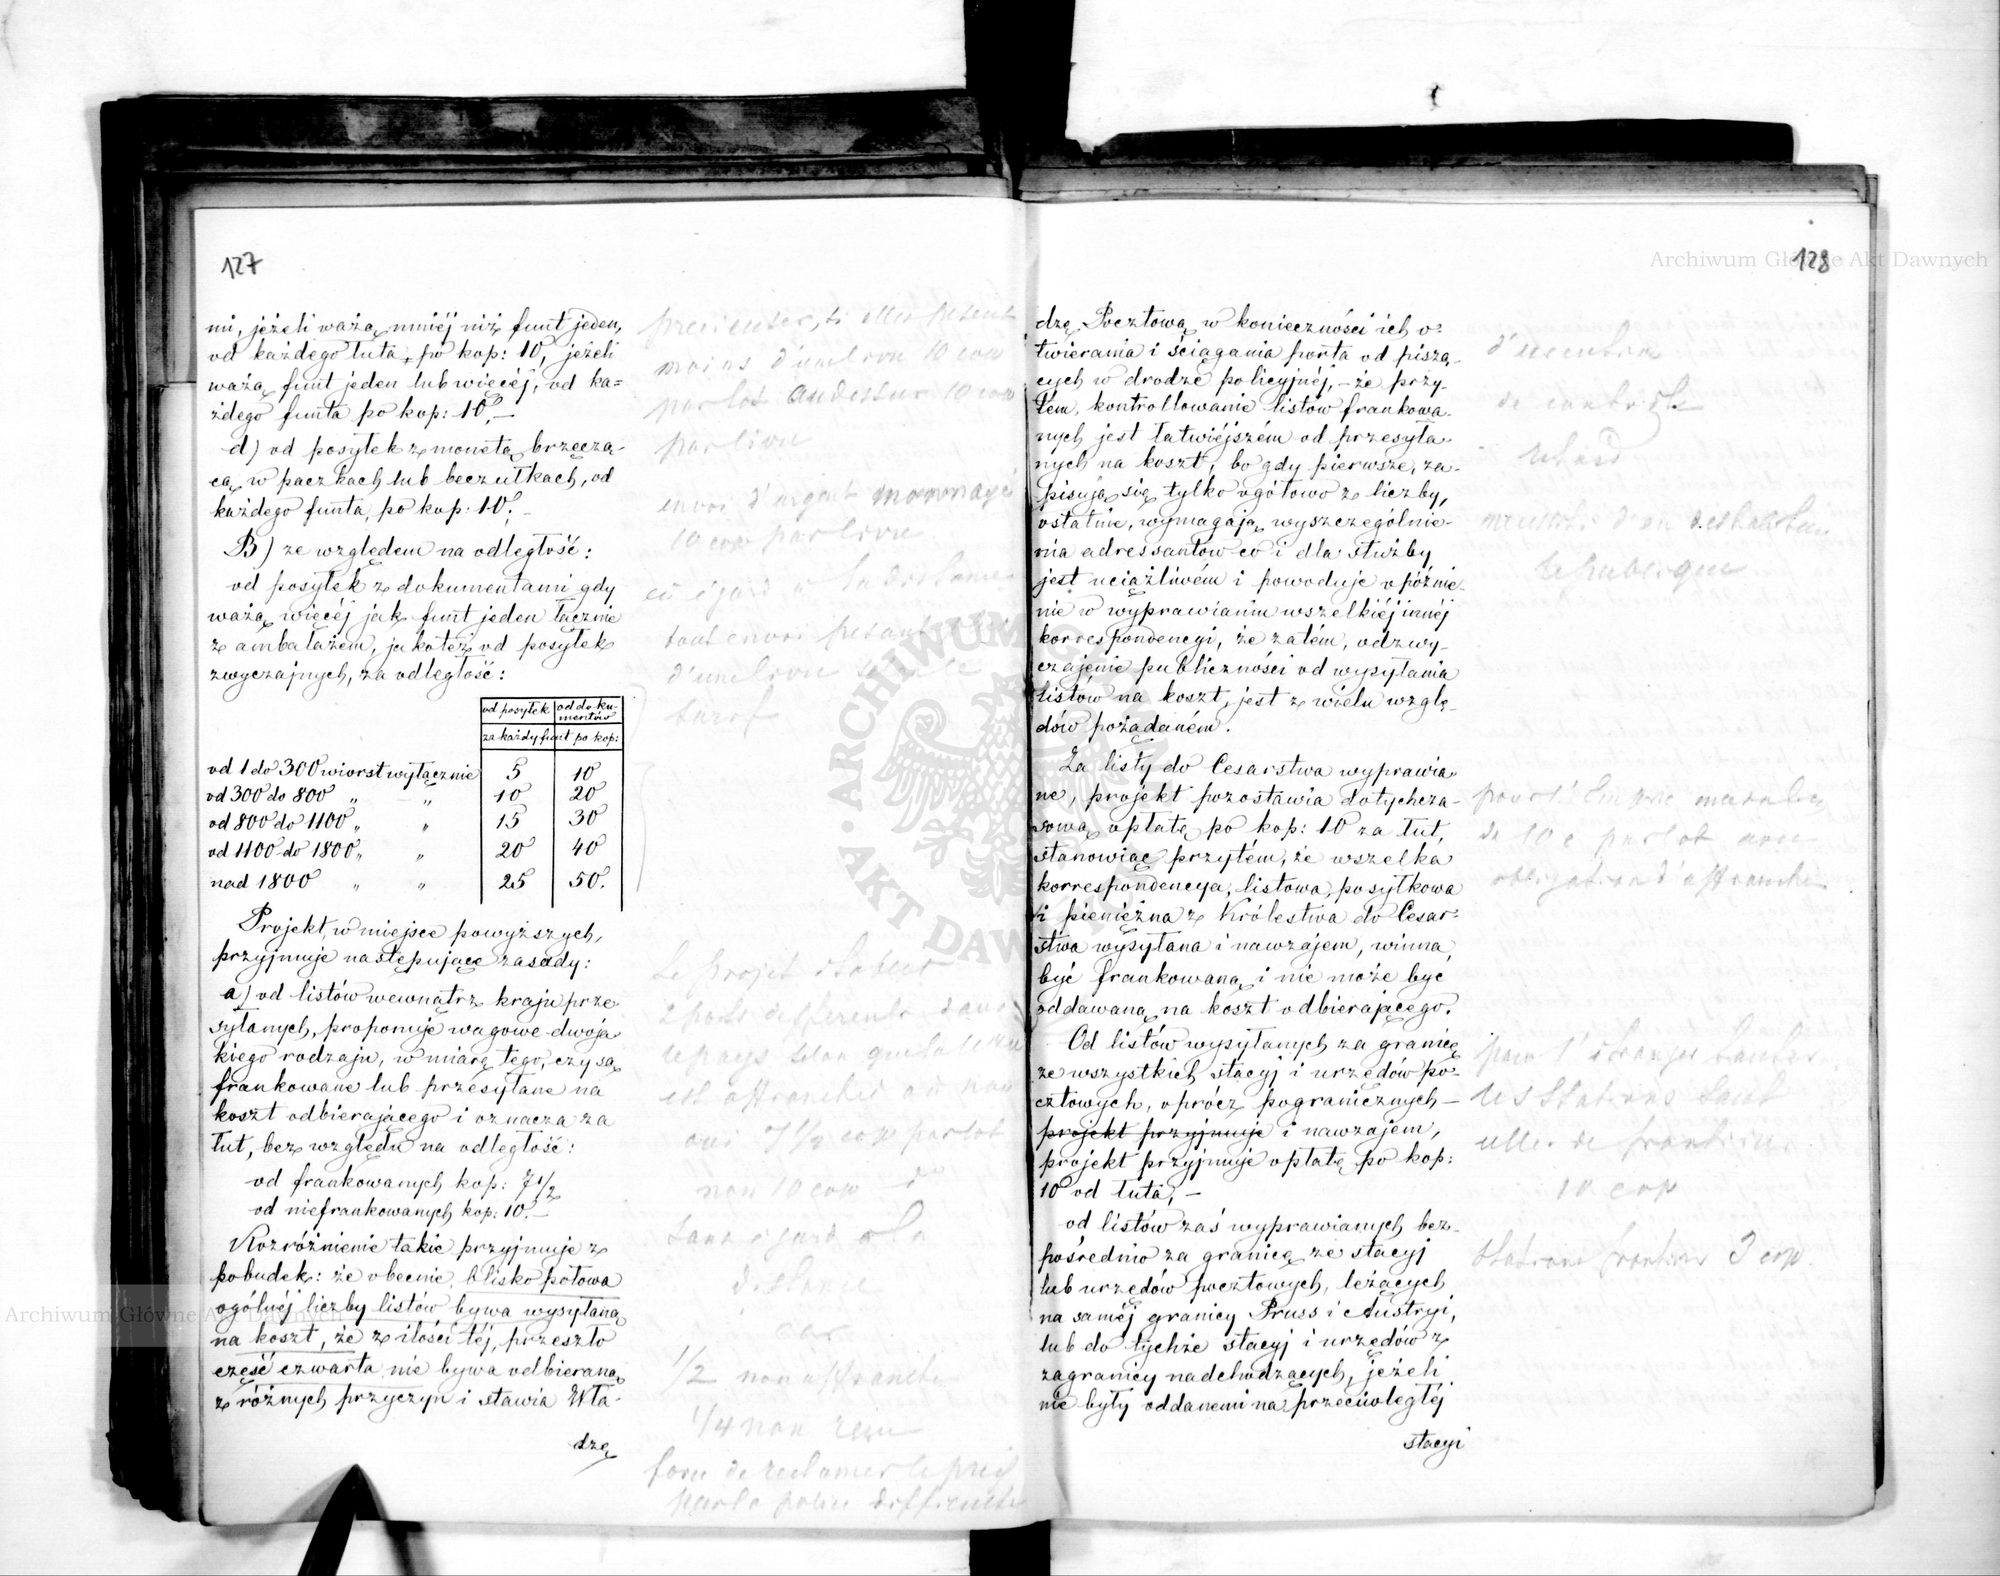 127
mi, jeżeli ważą mniéj niż funt jeden,
od każdego łuta, po kop: 10, jeżeli
ważą funt jeden lub więcéj, od ka=
żdego funta po kop: 10.—
d) od posyłek z monetą brzęczą-
cą w paczkach lub beczułkach, od
każdego funta, po kop: 10.—
B) ze względem na odległość:
od posyłek z dokumentami gdy
ważą więcéj jak funt jeden łącznie
z ambalażem, jakoteż od posyłek
zwyczajnych, za odległość:
od posyłek | od doku-
mentów
za każdy funt po kop:
od 1 do 300 wiorst wyłącznie 5 10
od 300 do 800 " " 10 20
od 800 do 1100 " " 15 30
od 1100 do 1800 " " 20 40
nad 1800 " " 25 50.
Projekt, w miejsce powyższych,
przyjmuje następujące zasady:
a) od listów wewnątrz kraju prze
syłanych, proponuje wagowe dwoja-
kiego rodzaju, w miarę tego, czy są
frankowane lub przesyłane na
koszt odbierającego i oznacza za
łut, bez względu na odległość:
od frankowanych kop: 7 1/2
od niefrankowanych kop: 10.—
Rozróżnienie takie przyjmuje z
pobudek: że obecnie blisko połowa
ogólnéj liczby listów bywa wysyłaną
na koszt, że z ilości téj, przeszło
cześć czwarta nie bywa odbieraną
z różnych przyczyn i stawia Wła-
dzę
moins d'une livre 10 cop
par lot au dessus 10 cop
par livre
envoi d'argent
10 cop par livre
tout envoi pesant
d'une livre
tarif
Le projet
2 ports differents dans
le pays selon
est affranchie ou non
oui 7 1/2 cop par lot
non 10 cop do
sans egard a la
distance
car
1/2 non affranchie
1/4 non
force de reclamer le prix
par la police
128
dzę Pocztową w konieczności ich o-
twierania i ściągania porta od piszą-
cych w drodze policyjnéj, – że przy-
tem, kontrollowanie listów frankowa-
nych jest łatwiéjszém od przesyła-
nych na koszt, bo gdy pierwsze, za-
pisują się tylko ogółowo z liczby,
ostatnie, wymagają wyszczególnie-
nia adressantów co i dla służby
jest uciążliwém i powoduje opóźnie-
nie w wyprawianiu wszelkiéj innéj
korrespondencyi, że zatém, odzwy-
czajenie publiczności od wysyłania
listów na koszt, jest z wielu wzglę-
dów pożądaném.
Za listy do Cesarstwa wyprawia-
ne, projekt pozostawia dotychcza-
sową opłatę po kop: 10 za łut,
stanowiąc przytém, że wszelka
korrespondencya, listowa, posyłkowa
i pieniężna z Królestwa do Cesar-
stwa wysyłana i nawzajem, winna
być frankowaną i nie może być
oddawaną na koszt odbierającego.
Od listów wysyłanych za granicę
ze wszystkich stacyj i urzędów po-
cztowych, oprócz pogranicznych—
projekt przyjmuje i nawzajem,
projekt przyjmuje opłatę po kop:
10 od łuta,—
od listów zaś wyprawianych bez-
pośrednio za granicę ze stacyj
lub urzędów pocztowych, leżących
na saméj granicy Pruss i Austryi,
lub do tychże stacyj i urzędów z
zagranicy nadchodzących, jeżeli
nie były oddanemi na przeciwległéj
stacyi
de controle
retard
pour l'Empire
de 10 c par lot avec
obligation d'affranchir
pour l'étranger toutes
les stations sauf
celles de frontière
10 cop
stations frontier 3 cop.
Archiwum Główne Akt Dawnych
Archiwum Główne Akt Dawnych
ARCHIWUM
AKT DAW